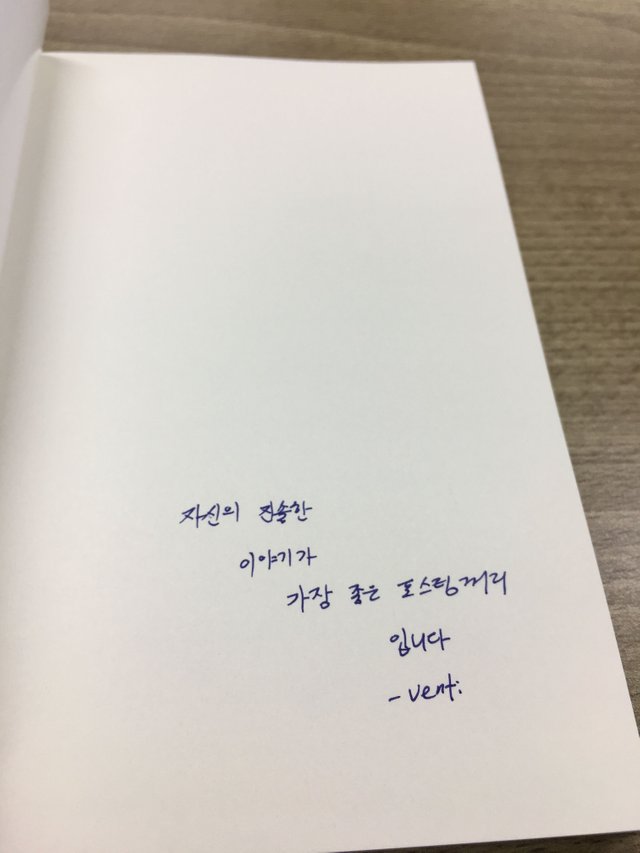 자신의 진솔한
이야기가
가장 좋은 포스팅꺼리
입니다
- venti